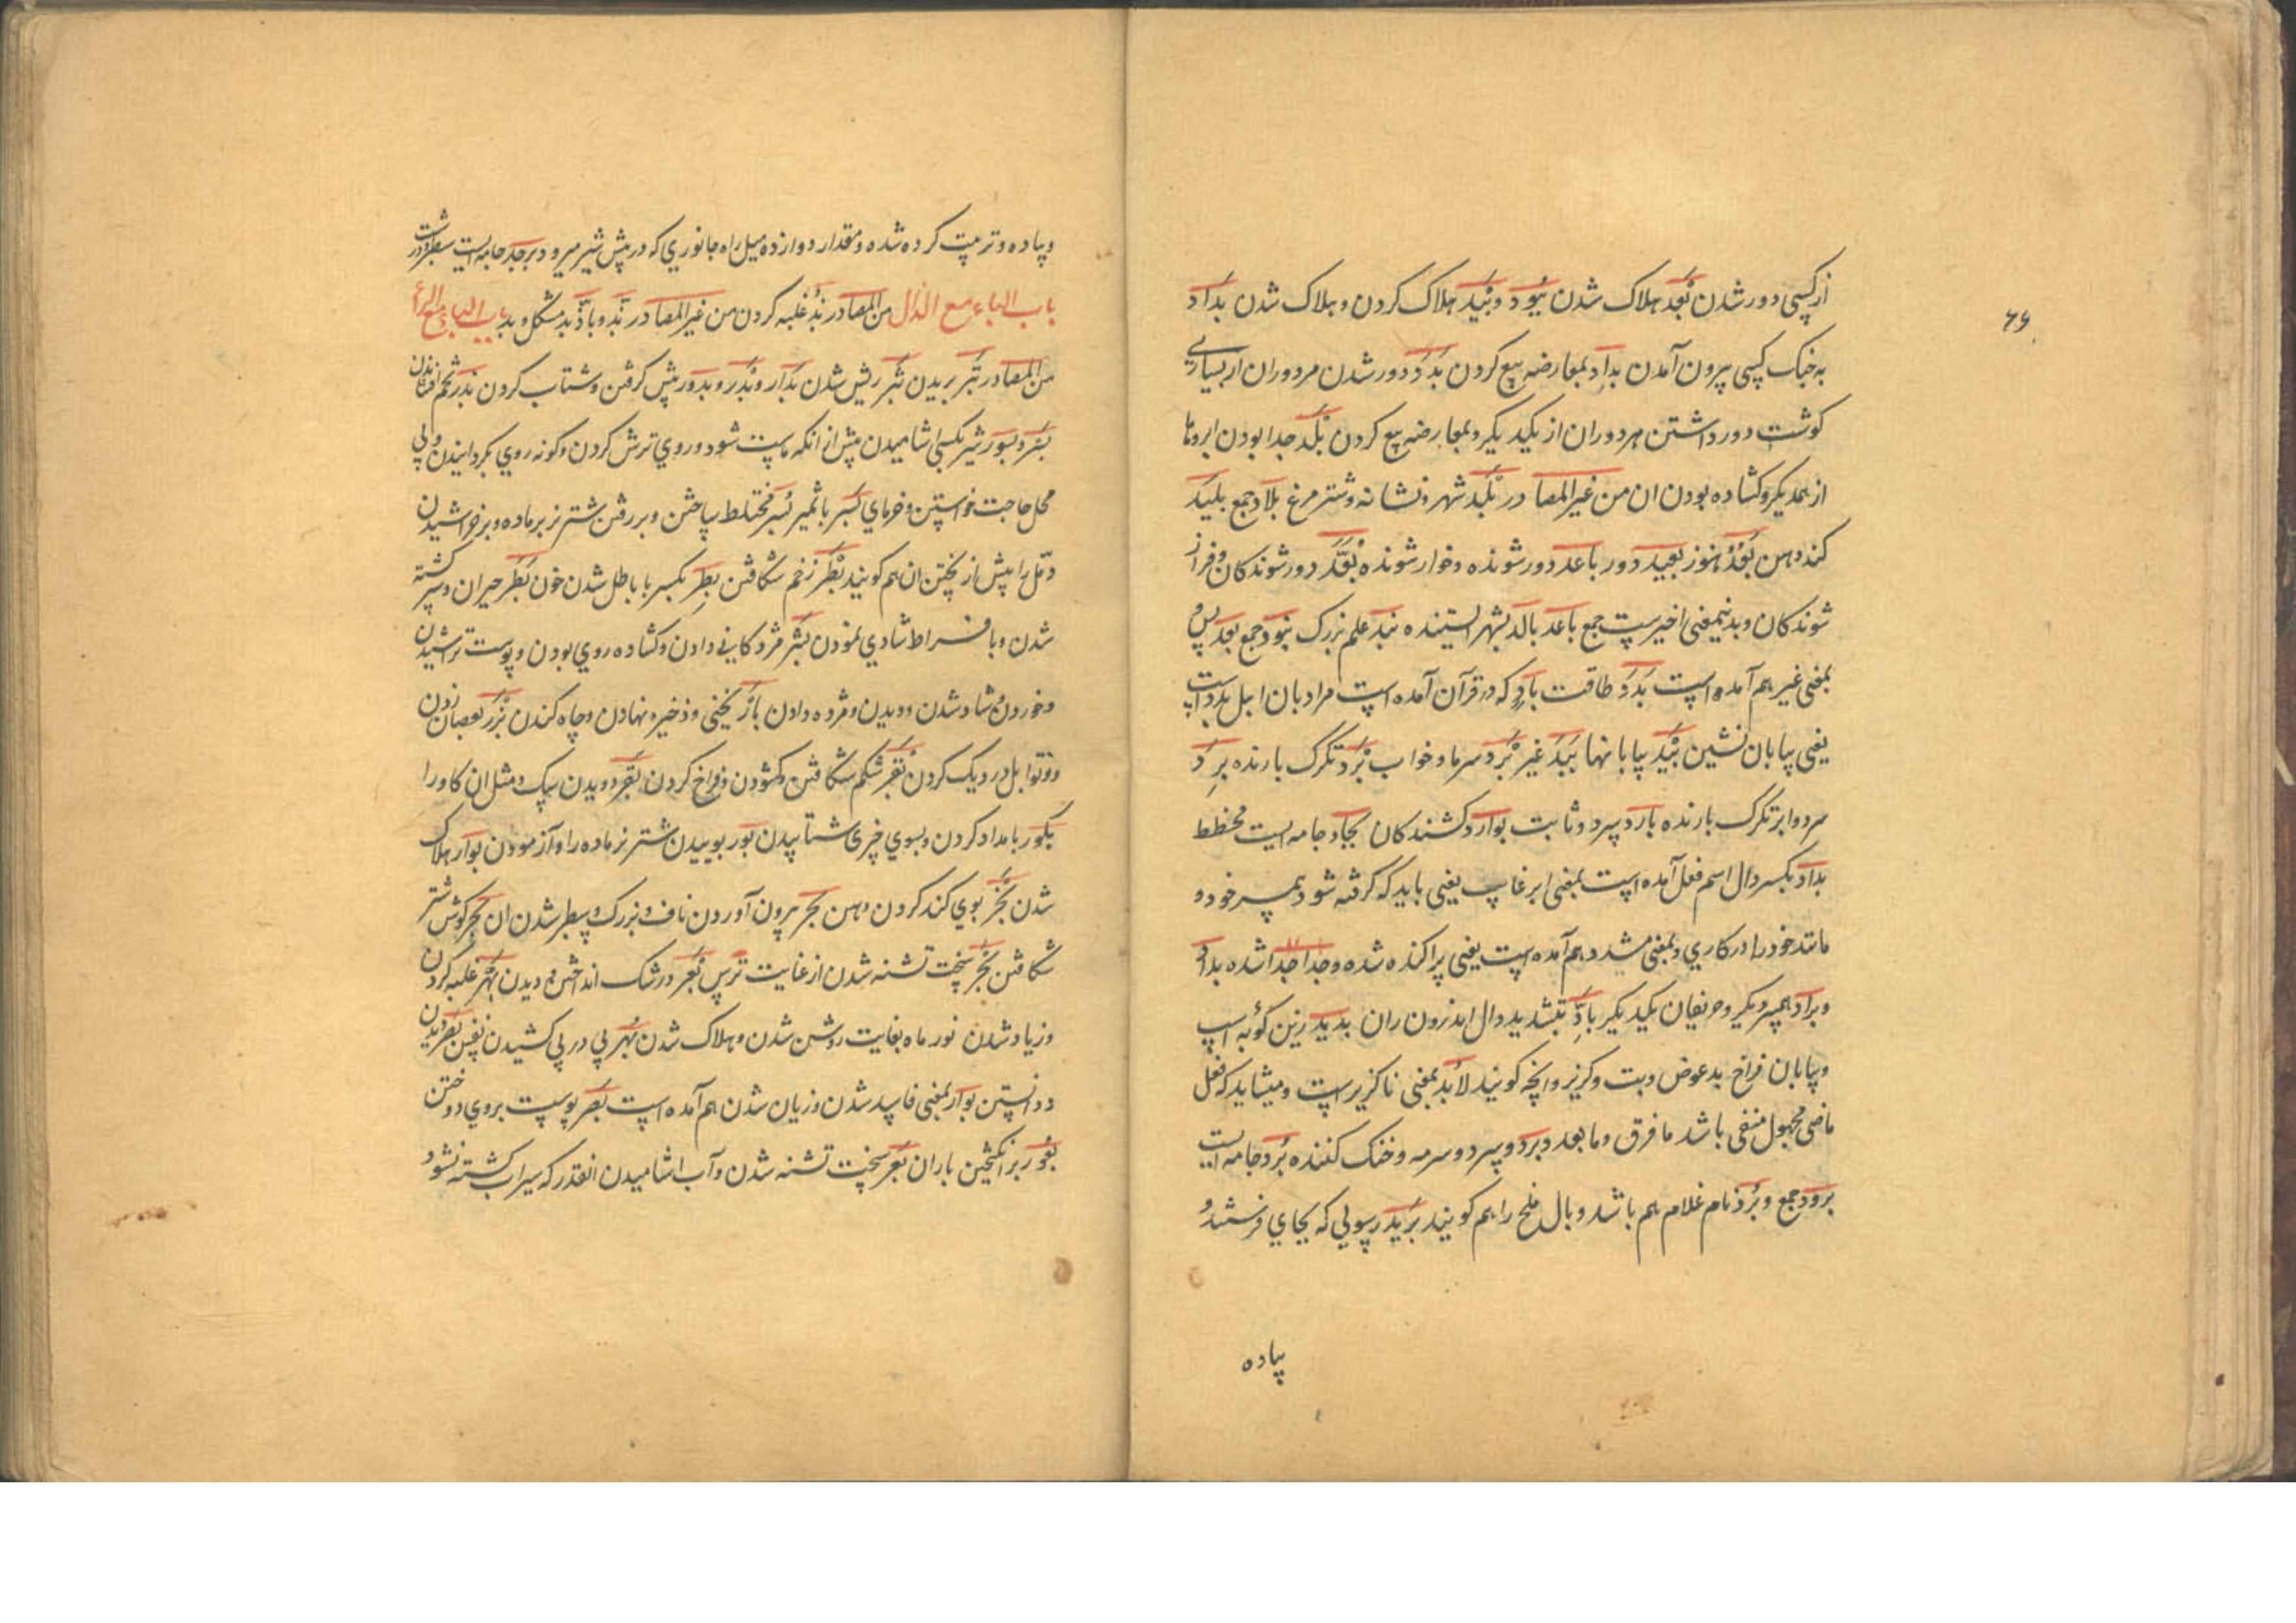 ۶۶
از کسی دور شدن بُعد هلاک شدن بیود و بید هلاک کردن و هلاک شدن بداد
به جنک کسی بیرون آمدن بداد بمعارضه بیع کردن بدد دور شدن مر دوران از بسیاری
کوشت و دور داشتن هر دوران از یکدیکر و بمعارضه بیع کردن بلد جدا بودن ابروها
از همدیکر و کشاده بودن ان من غیر المصادر بلد شهر و نشانه و شتر مرغ بلاد جمع بلید
کند ذهن بعد هنوز بعید دور باعد دور شونده و خوار شونده بعد دور شوندکان و فراز
شوندکان و بدین معنی اخیر ست جمع باعد بالد بشهر ایستنده بند علم بزرک بنود جمع بعد پس و
بمعنی غیر هم آمده است بدد طاقت باد که در قرآن آمده است مراد بان اهل بدو است
یعنی بیابان نشین بید بیابانها بید غیر برد سرما و خواب برد تکرک بارنده برد
سرد و ابر تکرک بارنده بارد سرد و ثابت بوارد کشندکان بجاد جامه ایست مخطط
بداد بکسر دال اسم فعل آمده است بمعنی ابر غایب یعنی باید که کرفته شود همسر خود و
مانند خود را در کاری و بمعنی مشدد هم آمده است یعنی پراکنده شده و جدا جدا شده بداد
و براد همسر دیکر و حریفان یکدیکر باد بتشدید دال اندرون ران بدید زین کوبه اسپ
و بیابان فراخ بد عوض و بت و کریز و انچه کویند لا بد بمعنی ناکزیر است و میشاید که فعل
ماضی مجهول منفی باشد ما فرق و ما بعد و برد و سرد و سرمه و خنک کننده برد جامه ایست
برود جمع و برد نام غلام هم باشد و بال ملخ را هم کویند برید رسولی که بجای فرستند و
پیاده
و پیاده و تربیت کرده شده و مقدار دوازده میل راه جانوری که در پیش شیر میرود برجد جامه ایست سطبر و درشت
باب الباء مع الذال من المصادر بذ غلبه کردن من غیر المصادر بذ و باذ بد مشکل و بد باب الباء مع الراء
من المصادر بتر بریدن بثر ریش شدن بدار و بدر و بدور پیش کرفتن و شتاب کردن بذر تخم افشاندن
بسر و بسور شیر بکسی اشامیدن پیش از انکه ماست شود و روی ترش کردن و کونه روی بکردانیدن و بی
محل حاجت خواستن و خرمای بسر با تمیر بسر مختلط ساختن و بر رفتن شتر نر بر ماده و بر خراشیدن
دمل را پیش از پختن ان هم کویند بطر زخم شکافتن بطر بکسر با باطل شدن خون بطر حیران و سر کشته
شدن و با فراط شادی نمودن بشر مژدکانی دادن و کشاده روی بودن و پوست تراشیدن
و خوردن و شاد شدن و دیدن و مژده دادن بار نیکی و ذخیره نهادن و چاه کندن بزر بعصا زدن
و توابل در دیک کردن بقر شکم شکافتن و کشودن و فراخ کردن بقر دویدن سک و مثل ان کاو را
بکور بامداد کردن و بسوی چیزی شتابیدن بور بوییدن شتر نر ماده را و آزمودن بوار هلاک
شدن بخر بوی کند کردن دهن بجر بیرون آوردن ناف و بزرک و سطبر شدن ان بحر کوش شتر
شکافتن بحر سخت تشنه شدن از غایت ترس بعر در شک انداختن و دیدن بهر غلبه کردن
و زیاد شدن نور ماه بغایت روشن شدن و هلاک شدن بهر پی در پی کشیدن نفس بصر دیدن
و دانستن بوار بمعنی فاسد شدن و زیان شدن هم آمده است بصر پوست بروی دوختن
بغور برانکیختن باران بغر سخت تشنه شدن و آب اشامیدن انقدر که سیراب کشته نشود